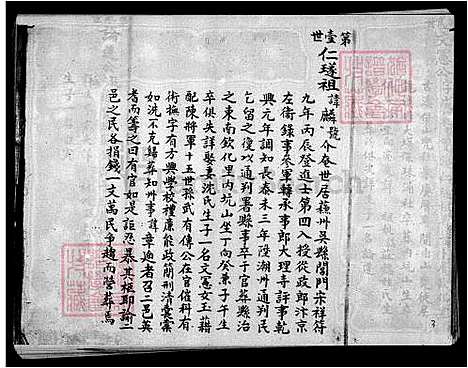 第壹世
仁璲祖
諱麟號介庵世居蘇州吳縣閶門宋祥符
九年丙辰登進士第四入授從政郎汴京
左衛錄事參軍轉承事郎大理寺評事乾
興元年調知長泰未三年陞湖州通判民
乞留之復以通判署縣事卒于官葬縣治
之東南欽化里內坑山坐丁向癸兼子午生
卒俱失詳娶妻沈氏生子一名文憲女玉藉
配陳將軍十五世孫武有傳公在官催科有
術撫字有方興學校禮廉能政簡刑清囊橐
如洗不克歸葬知州事諱章迎者召二邑英
耆而籌之曰有官如是詎忍暴其柩耶諭二
邑之民各捐錢一文萬民爭趨而營葬焉
3